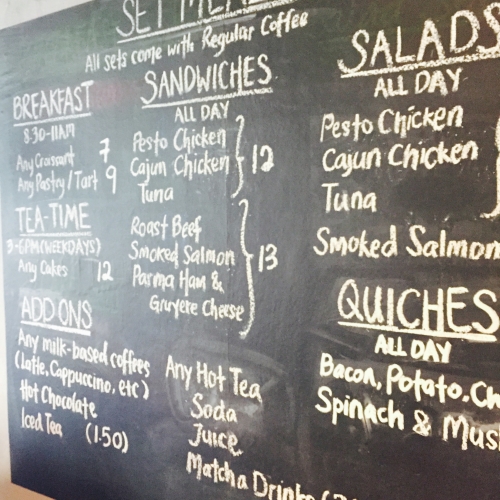 SET MEALS
All sets come with Regular Coffee
BREAKFAST
8.30-11AM
Any Croissant 7
Any Pastry/Tart 9
TEA-TIME
3-6PM (WEEKDAYS)
Any Cakes 12
ADD ONS
Any milk-based coffees
(Latte, Cappuccino, etc)
Hot Chocolate
Iced Tea (1.50)
SANDWICHES
ALL DAY
Pesto Chicken
Cajun Chicken 12
Tuna
Roast Beef
Smoked Salmon 13
Parma Ham &
Gruyere Cheese
Any Hot Tea
Soda
Juice
Matcha Drinks
SALADS
ALL DAY
Pesto Chicken
Cajun Chicken
Tuna
Smoked Salmon
QUICHES
ALL DAY
Bacon, Potato, Ch
Spinach & Mus